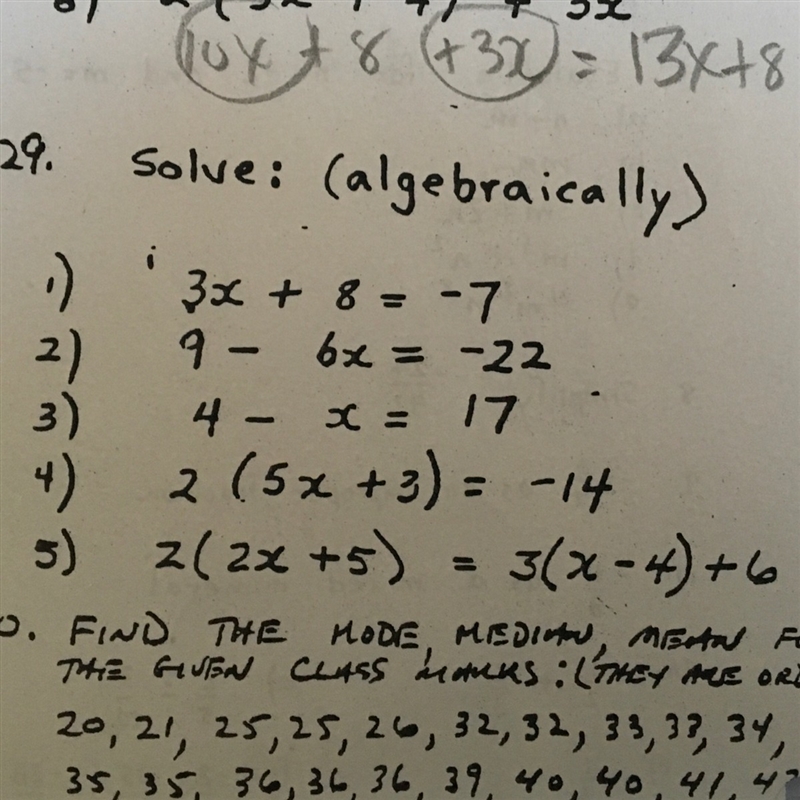 10x + 8 + 3x = 13x + 8
29. Solve: (algebraically)
1) 3x + 8 = -7
2) 9 - 6x = -22
3) 4 - x = 17
4) 2 (5x + 3) = -14
5) 2(2x + 5) = 3(x - 4) + 6
FIND THE MODE, MEDIAN, MEAN
THE GIVEN CLASS MARKS: (THEY ARE
20, 21, 25, 25, 26, 32, 32, 33, 33, 34,
35, 35, 36, 36, 36, 39, 40, 40, 41,